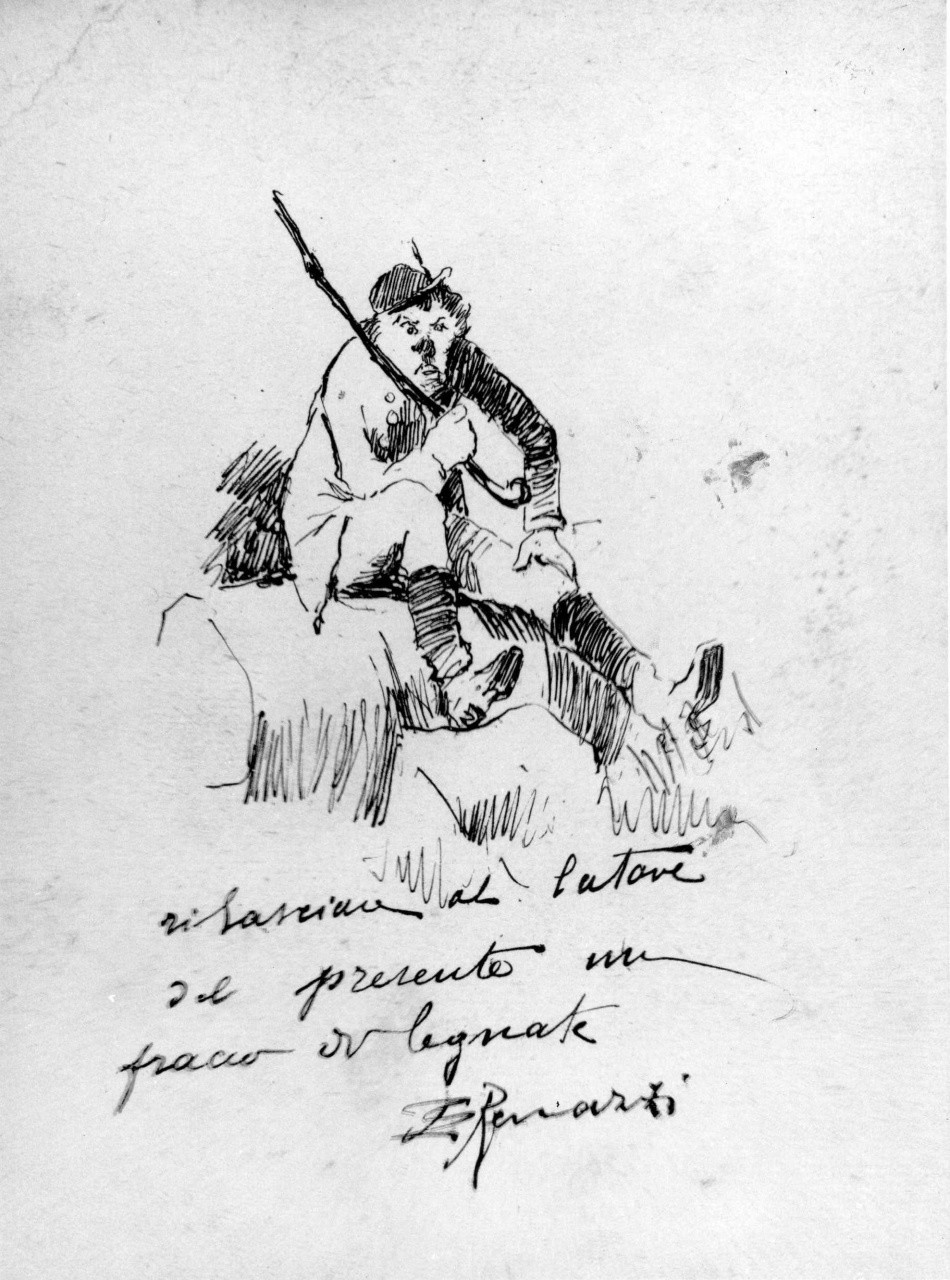 rilasciare al latore
del presente un
fracco di legnate
E Renazzi